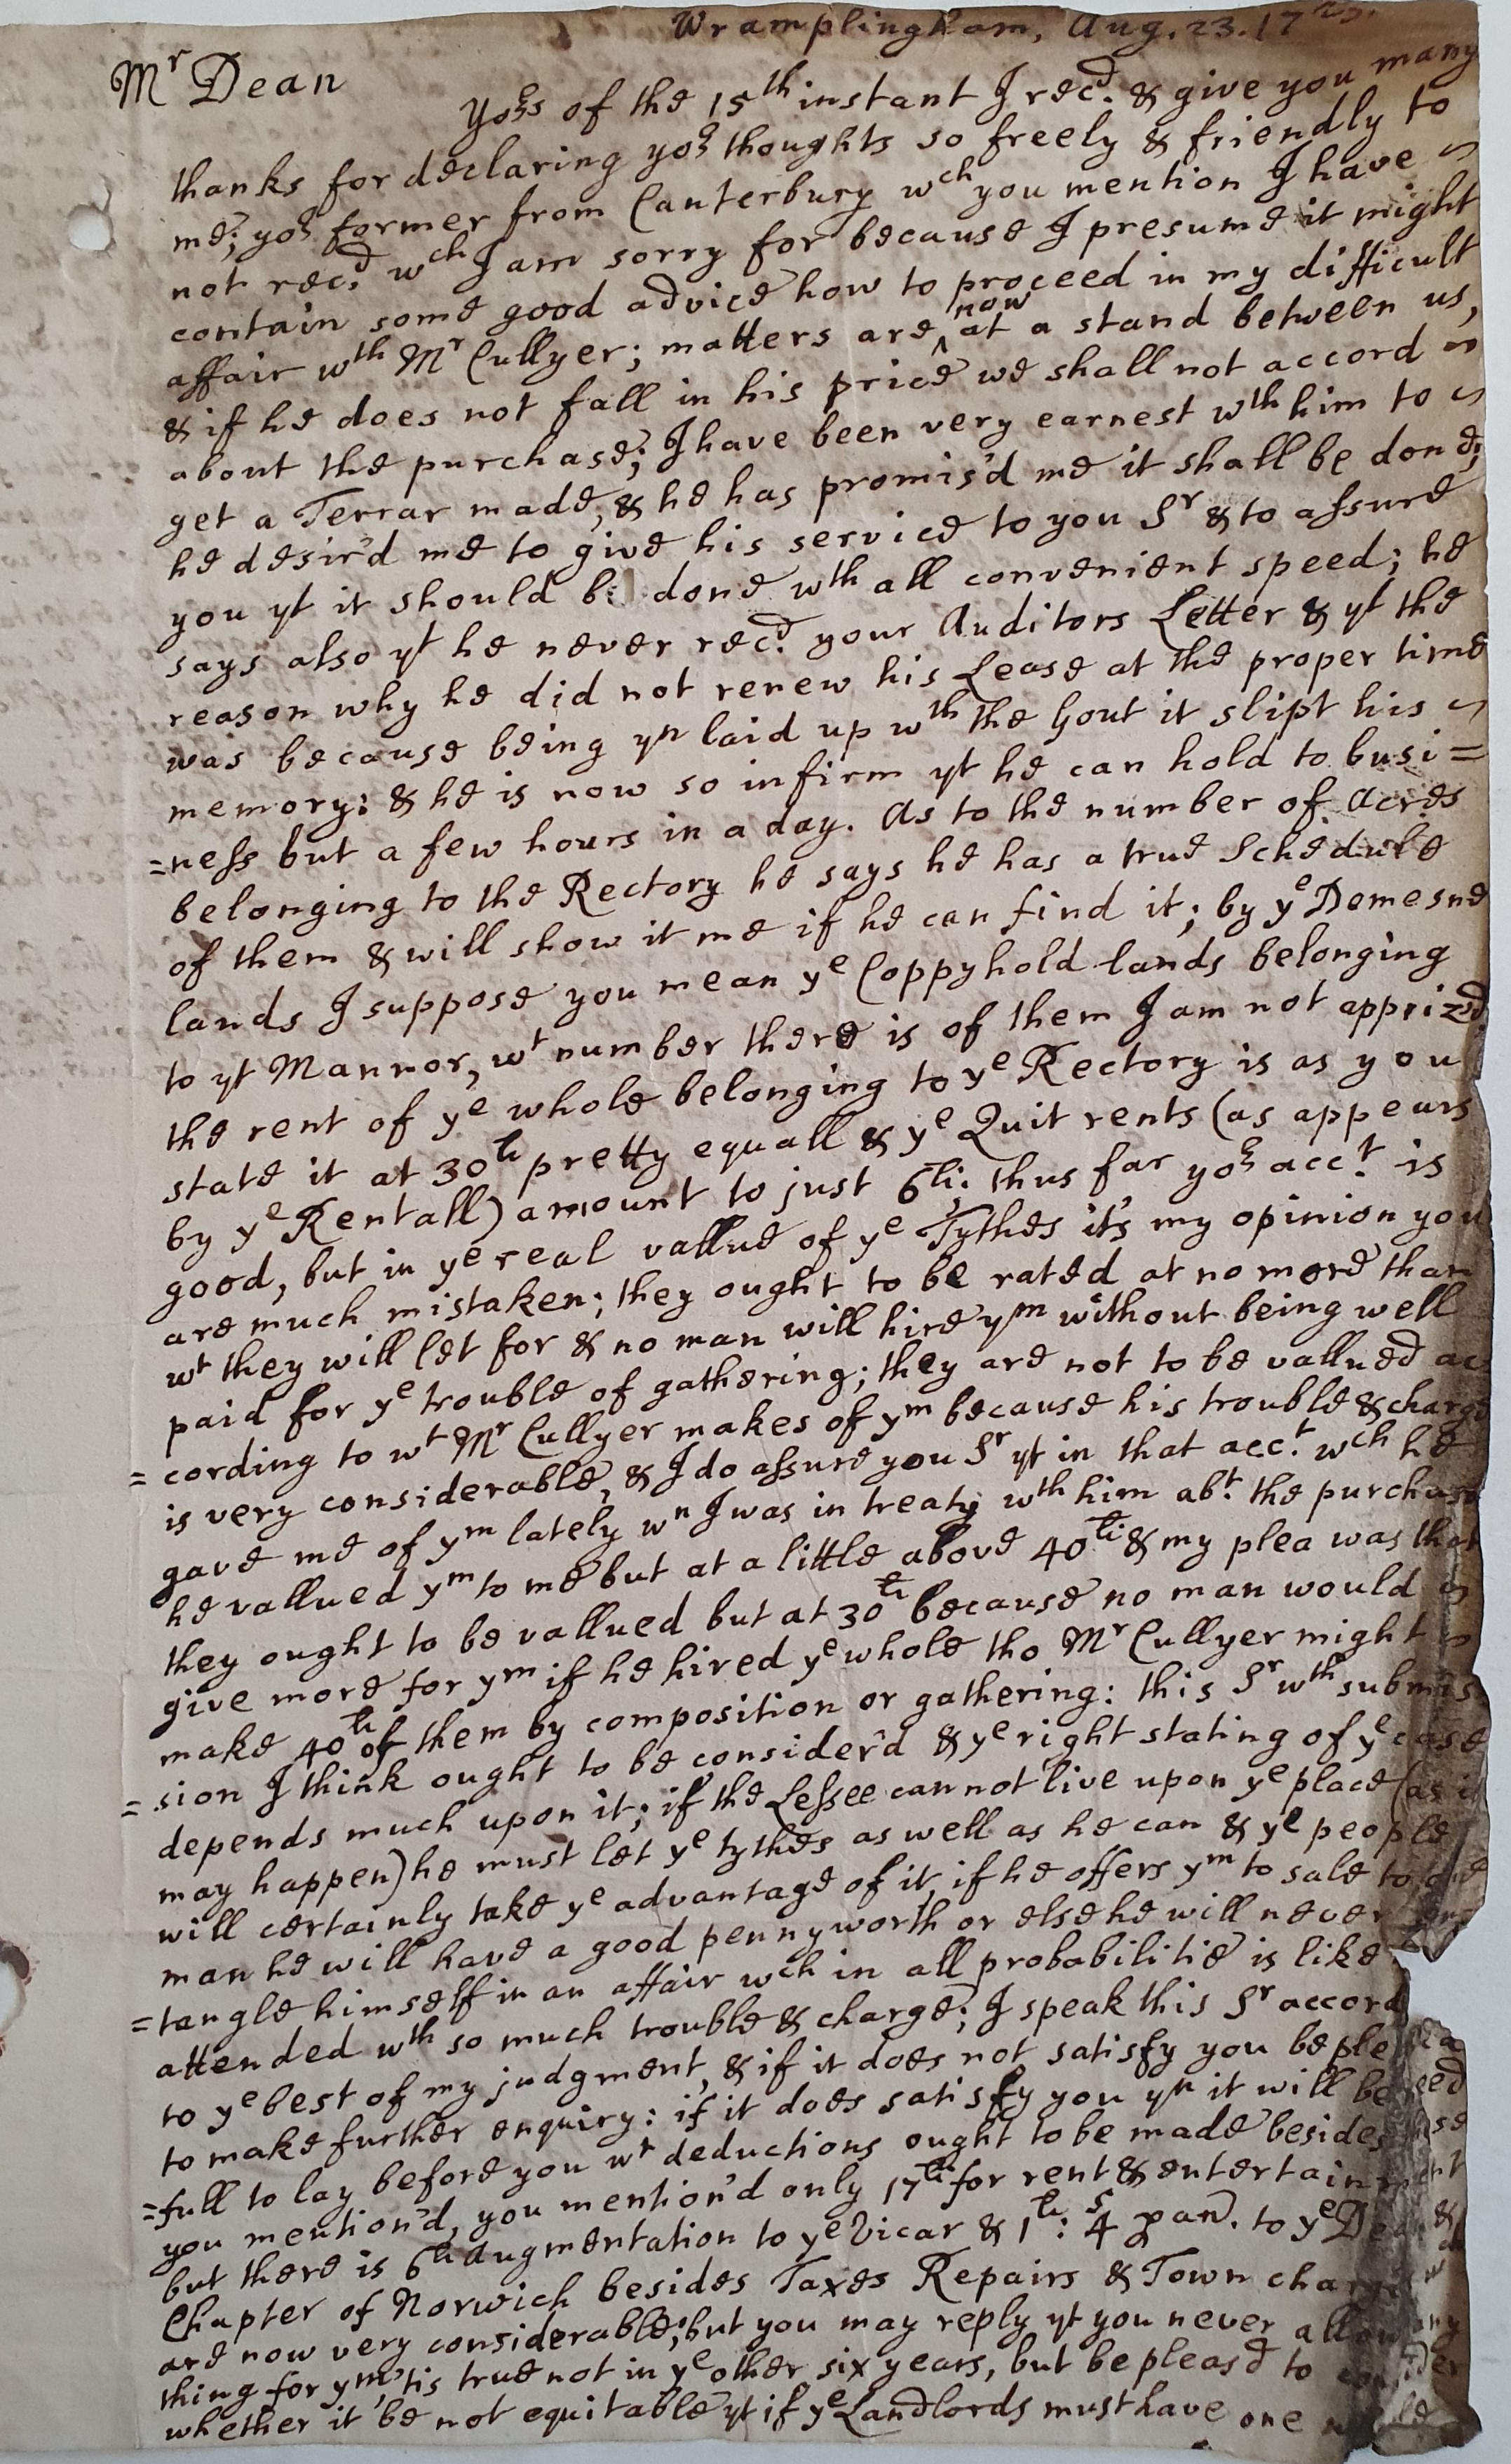 Wramplingham, Aug. 23. 17
Mr Dean
Yors of the 15th instant I recd. & give you many
thanks for declaring yor thoughts so freely & friendly to
me; yor former from Canterbury wch you mention I have
not recd, wch I am sorry for because I presume it might
contain some good advice how to proceed in my difficult
affair wth Mr Cullyer; matters are now at a stand between us,
& if he does not fall in his price we shall not accord
about the purchase; I have been very earnest wth him to
get a Terrar made, & he has promis'd me it shall be done;
he desir'd me to give his service to you Sr & to assure
you yt it should be done wth all convenient speed; he
says also yt he never recd. your Auditors Letter & yt the
reason why he did not renew his Lease at the proper time
was because being yn laid up wth the Gout it slipt his
memory: & he is now so infirm yt he can hold to busi=
=ness but a few hours in a day. As to the number of Acres
belonging to the Rectory he says he has a true Schedule
of them & will show it me if he can find it; by ye Demesne
lands I suppose you mean ye Coppyhold lands belonging
to yt Mannor, wt number there is of them I am not apprizd
the rent of ye whole belonging to ye Rectory is as you
state it at 30li pretty equall & ye Quit rents (as appears
by ye Rentall) amount to just 6li: thus far yor acct. is
good, but in ye real vallue of ye Tythes it's my opinion you
are much mistaken; they ought to be rated at no more than
wt they will let for & no man will hire ym without being well
paid for ye trouble of gathering; they are not to be vallued ac
=cording to wt Mr Cullyer makes of ym because his trouble & charge
is very considerable, & I do assure you Sr yt in that acct. wch he
gave me of ym lately wn I was in treaty wth him abt. the purchase
he vallued ym to me but at a little above 40li & my plea was that
they ought to be vallued but at 30li because no man would
give more for ym if he hired ye whole tho Mr Cullyer might
make 40li of them by composition or gathering: this Sr wth submis
=sion I think ought to be consider'd & ye right stating of ye case
depends much upon it; if the Lessee cannot live upon ye place (as it
may happen) he must let ye tythes as well as he can & ye people
will certainly take ye advantage of it, if he offers ym to sale to
man he will have a good pennyworth or else he will never en
=tangle himself in an affair wch in all probabilitie is like
attended wth so much trouble & charge; I speak this Sr accord
to ye best of my judgment, & if it does not satisfy you be
to make further enquiry: if it does satisfy you yn it will be need
=full to lay before you wt deductions ought to be made besides
you mention'd, you mention'd only 17li for rent & entertainment
but there is 6li Augmentation to ye Vicar & 1li: 4s p an. to ye Dean &
Chapter of Norwich besides Taxes Repairs & Town
are now very considerable; but you may reply yt you never allow any
thing for ym, 'tis true not in ye other six years, but be pleas'd to consider
whether it be not equitable yt if ye Landlords must have one